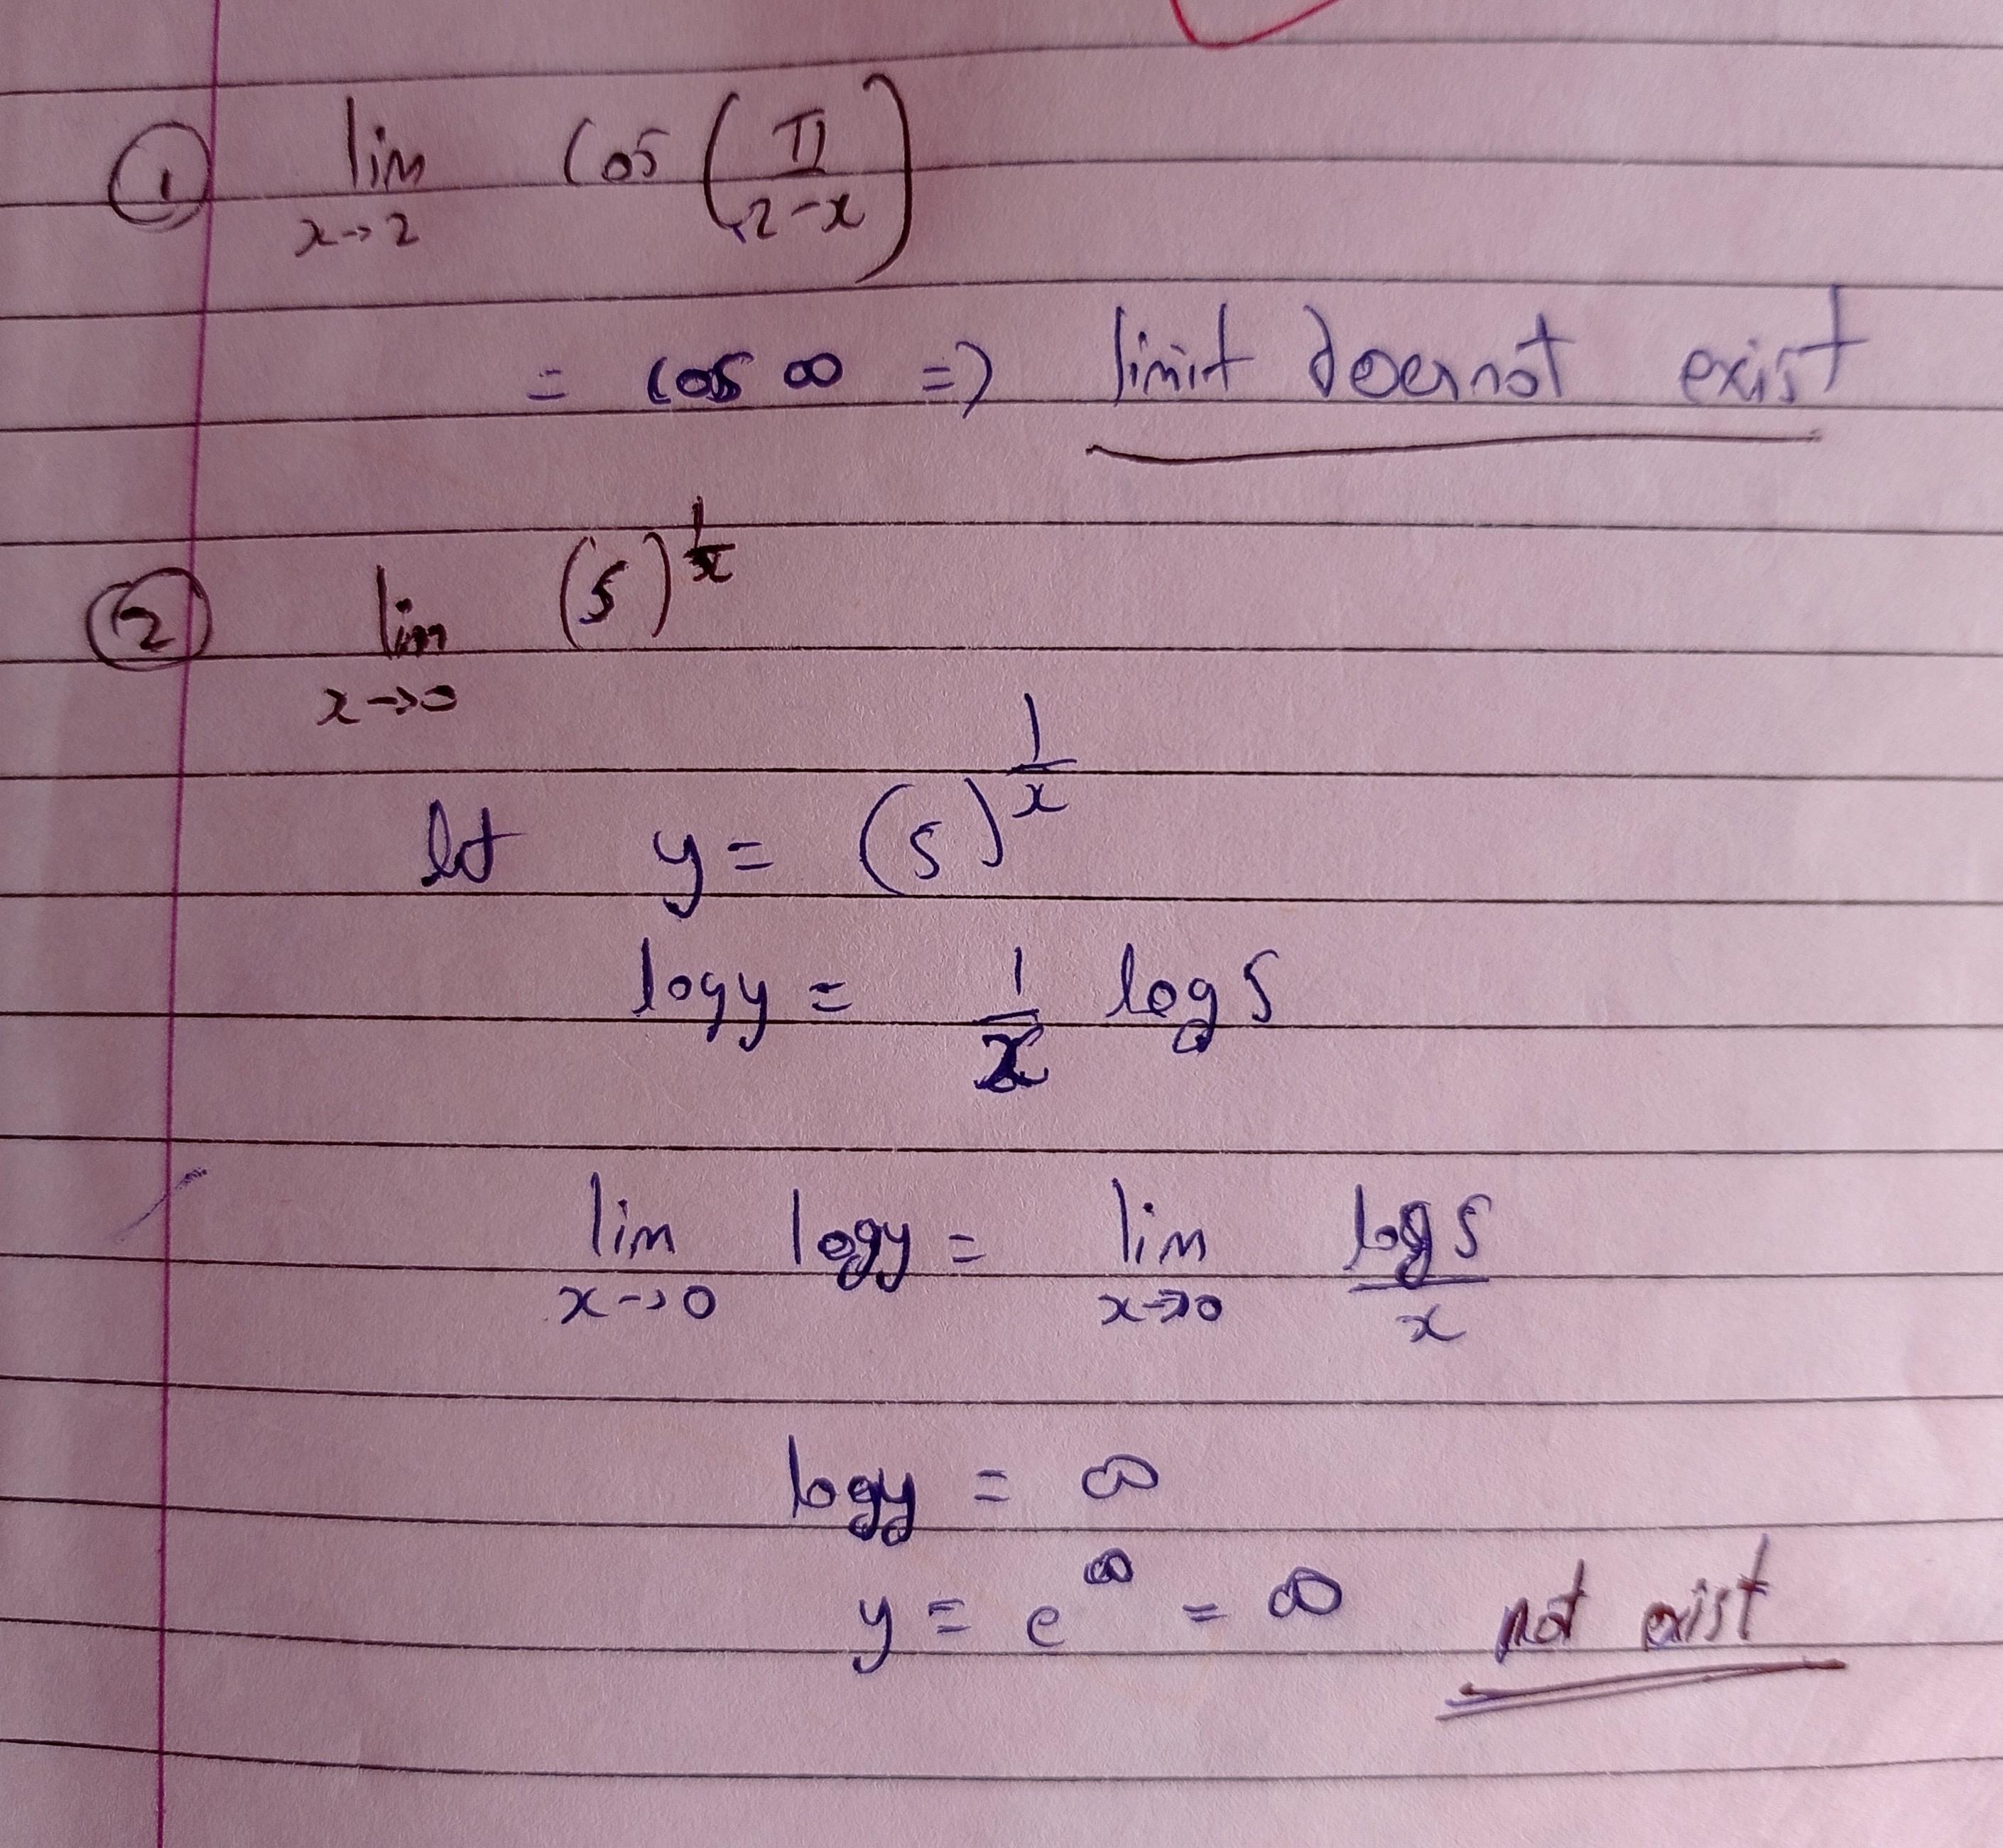 ① lim x→2 cos (π/2-x)
= cos ∞ ⇒ limit doernot exist
② lim x→0 (5)^1/x
let y = (5)^1/x
logy = 1/x log 5
lim x→0 logy = lim x→0 log 5/x
logy = ∞
y = e^∞ = ∞ not exist